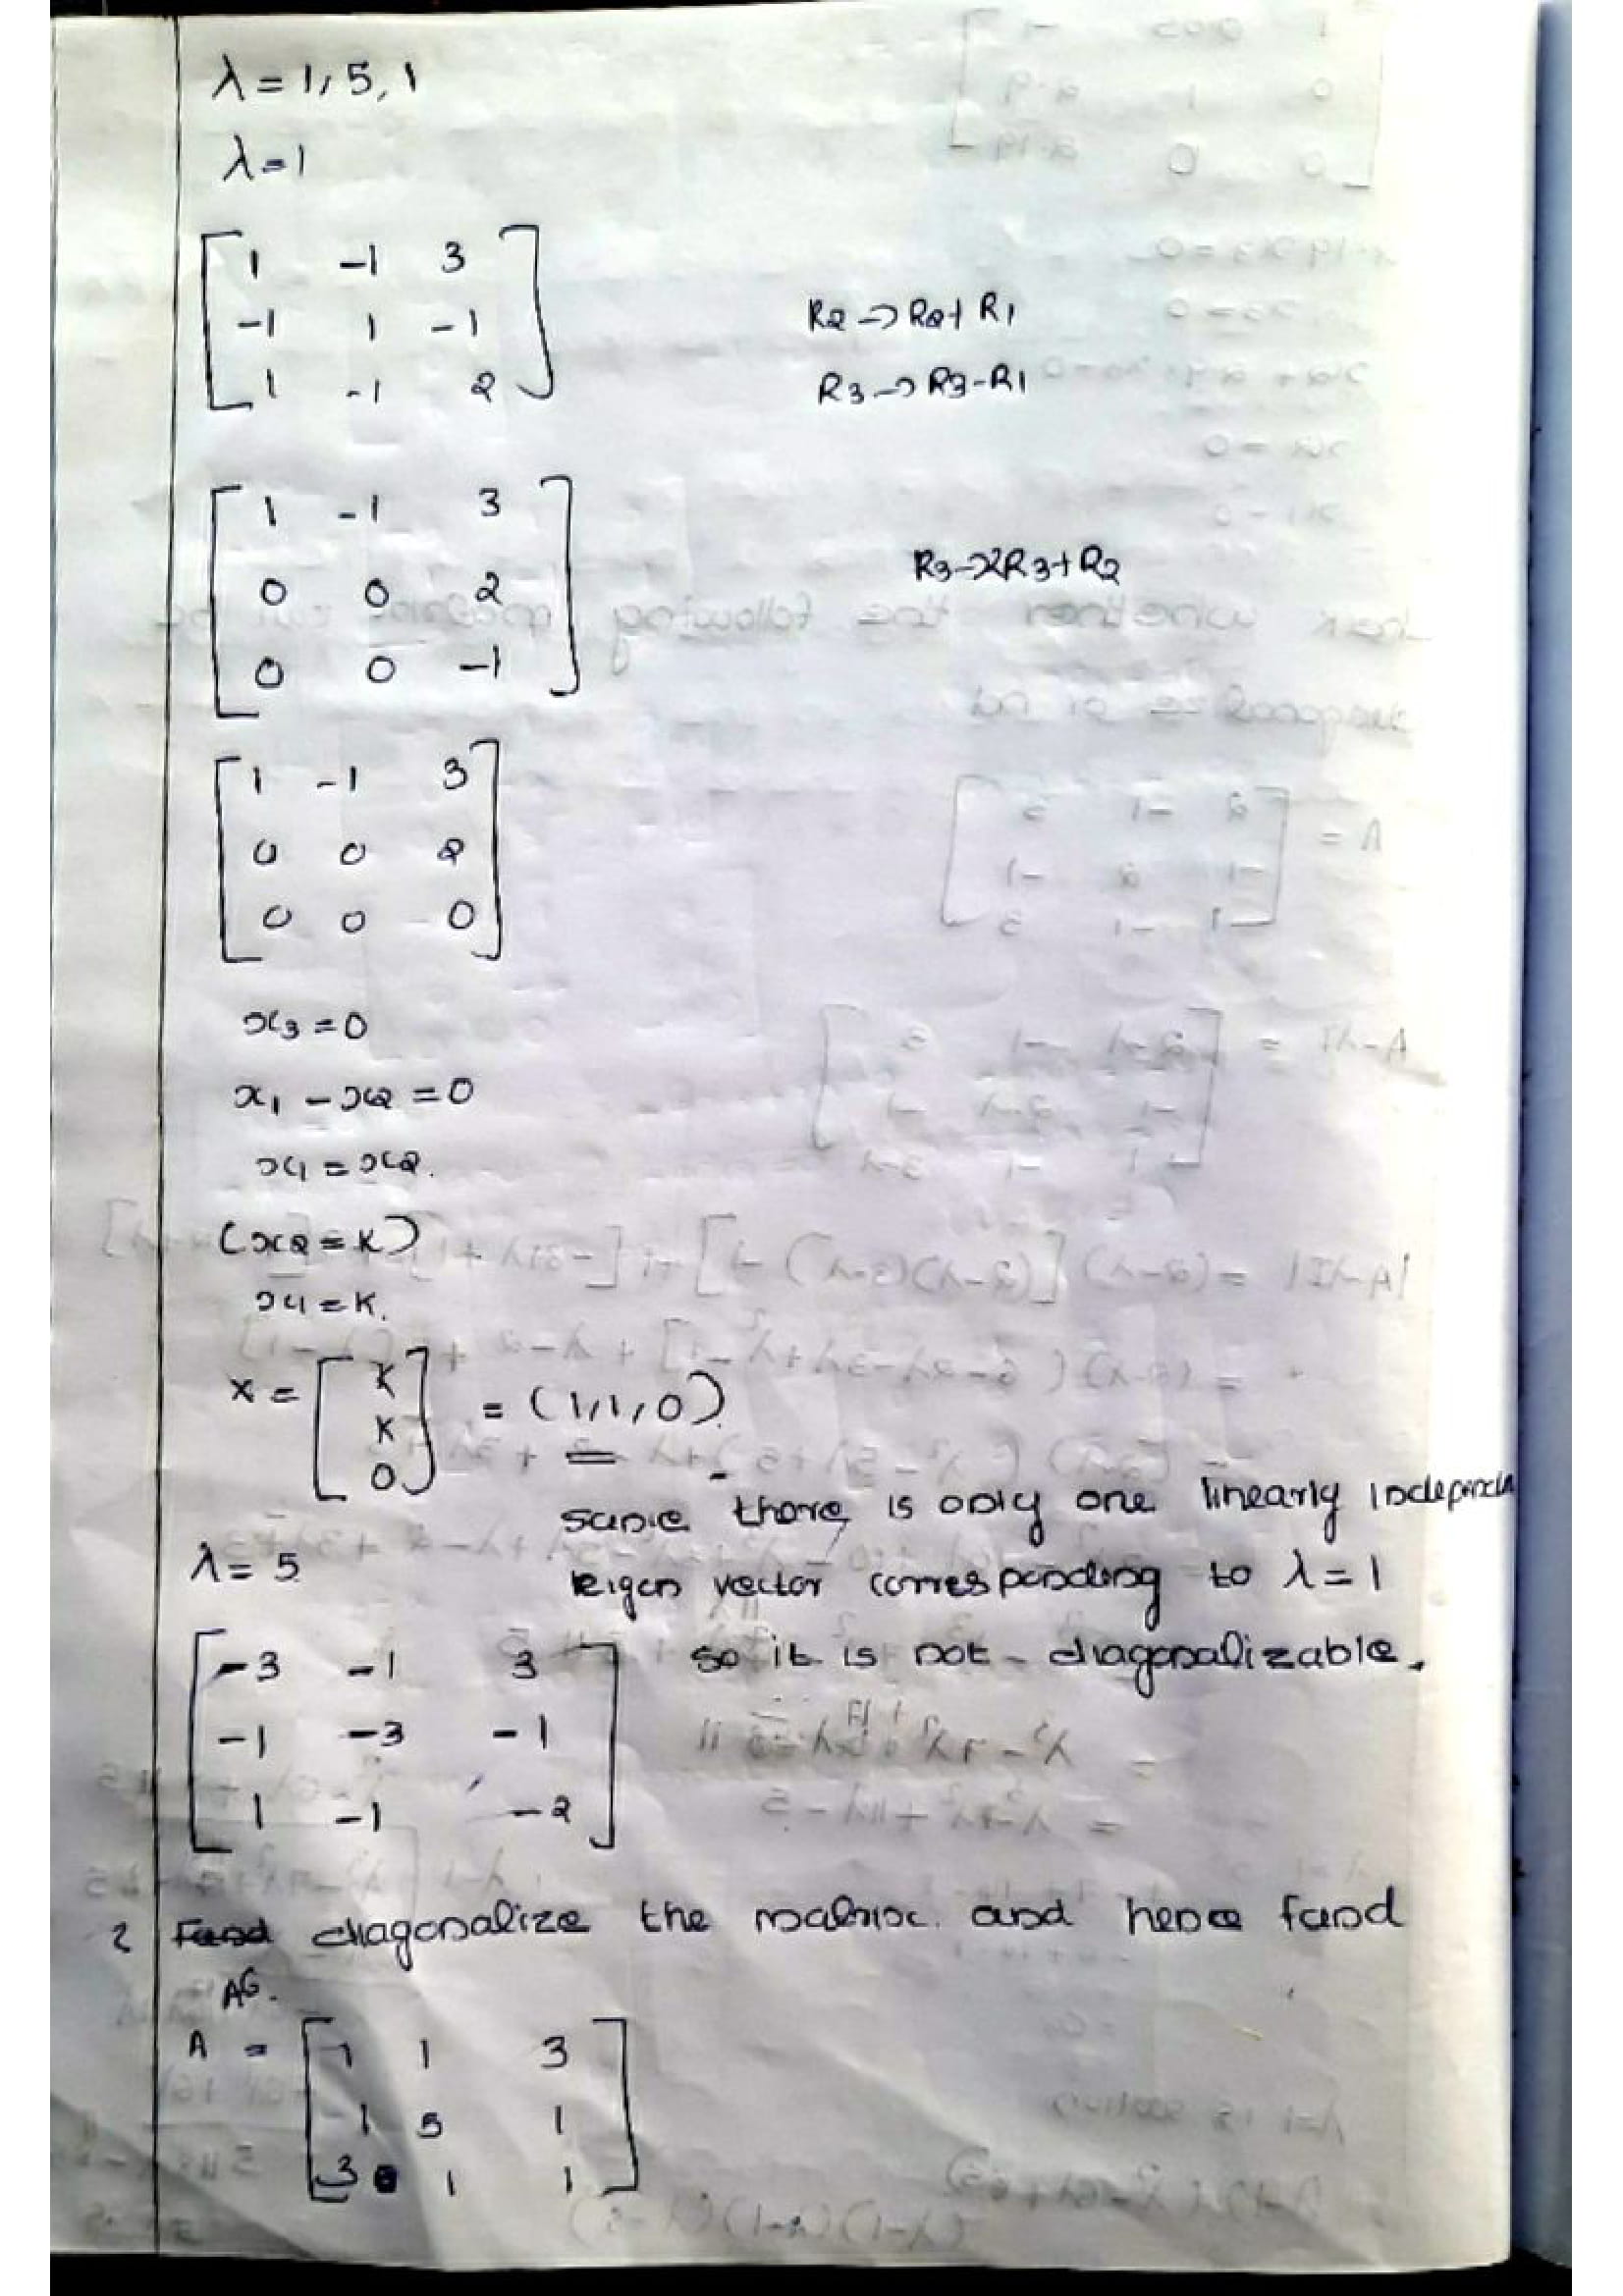 λ = 1, 5, 1
λ = 1
1 -1 3
-1 1 -1
1 -1 2
R2 → R2 + R1
R3 → R3 - R1
1 -1 3
0 0 2
0 0 -1
R3 → 2R3 + R2
1 -1 3
0 0 2
0 0 0
x3 = 0
x1 - x2 = 0
x1 = x2.
(x2 = K)
x1 = K.
x = [K K 0] = (1, 1, 0)
there is only one linearly
eigen vector corresponding to λ = 1
so it is not diagonalizable.
λ = 5
-3 -1 3
-1 -3 -1
1 -1 -2
2 Find diagonalize the matrix and hence find
A6.
A =
1 1 3
1 5 1
3 1 1